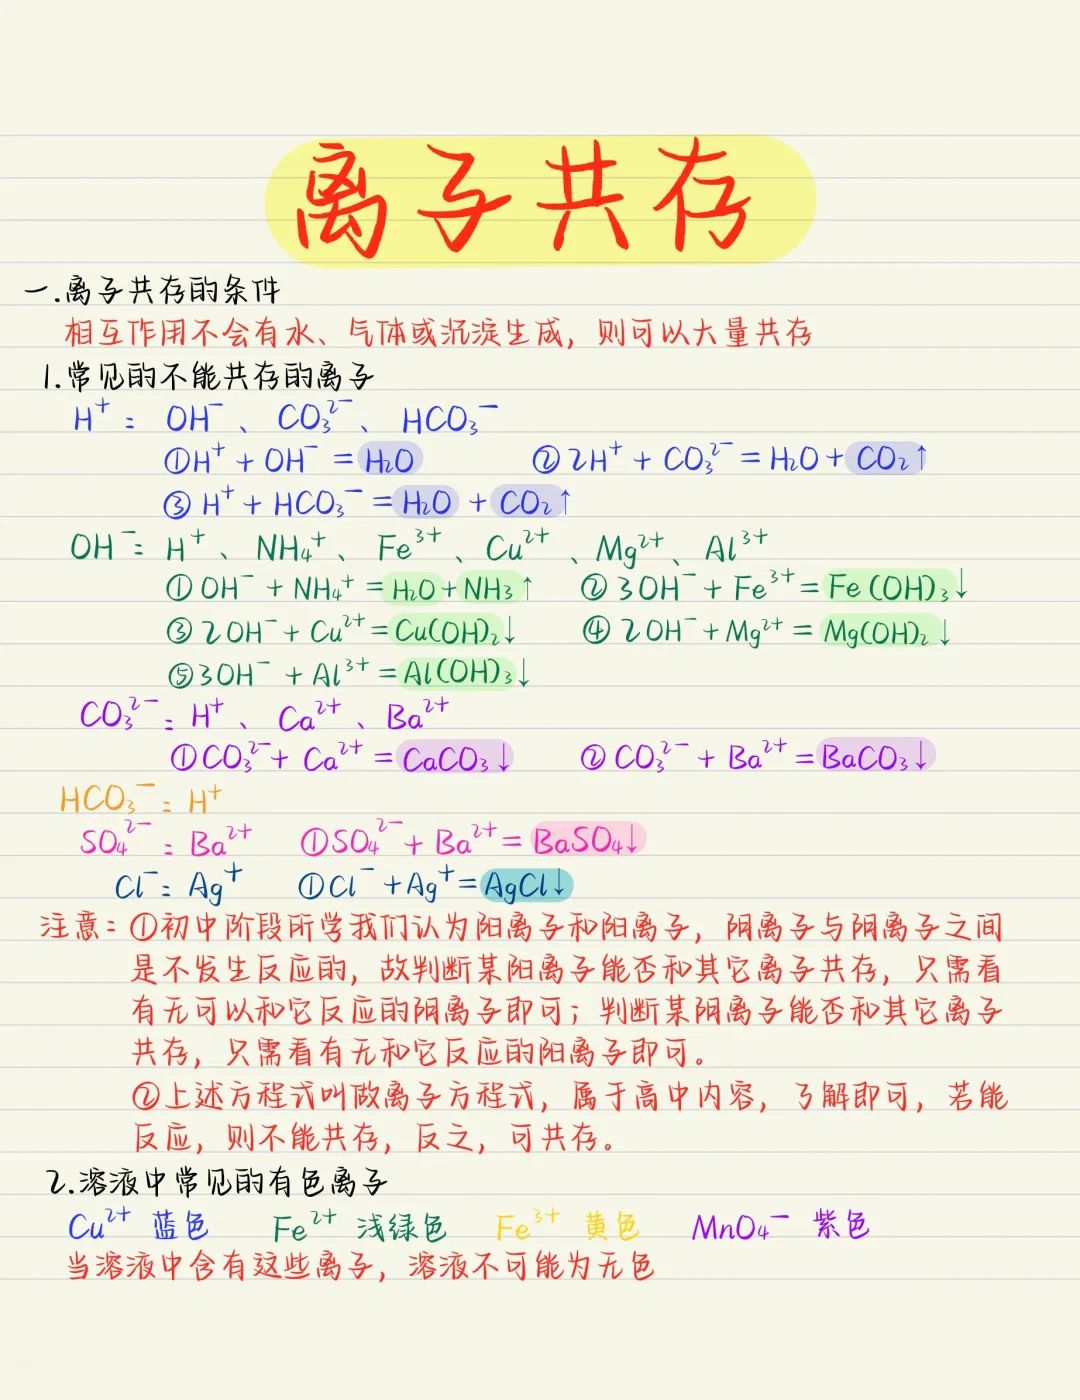 离子共存
一.离子共存的条件
相互作用不会有水、气体或沉淀生成，则可以大量共存
1.常见的不能共存的离子
H⁺： OH⁻、CO₃²⁻、HCO₃⁻
①H⁺ + OH⁻ = H₂O ②2H⁺ + CO₃²⁻ = H₂O + CO₂↑
③H⁺ + HCO₃⁻ = H₂O + CO₂↑
OH⁻：H⁺、NH₄⁺、Fe³⁺、Cu²⁺、Mg²⁺、Al³⁺
①OH⁻ + NH₄⁺ = H₂O + NH₃↑ ②3OH⁻ + Fe³⁺ = Fe(OH)₃↓
③2OH⁻ + Cu²⁺ = Cu(OH)₂↓ ④2OH⁻ + Mg²⁺ = Mg(OH)₂↓
⑤3OH⁻ + Al³⁺ = Al(OH)₃↓
CO₃²⁻：H⁺、Ca²⁺、Ba²⁺
①CO₃²⁻ + Ca²⁺ = CaCO₃↓ ②CO₃²⁻ + Ba²⁺ = BaCO₃↓
HCO₃⁻：H⁺
SO₄²⁻：Ba²⁺ ①SO₄²⁻ + Ba²⁺ = BaSO₄↓
Cl⁻：Ag⁺ ①Cl⁻ + Ag⁺ = AgCl↓
注意：①初中阶段所学我们认为阳离子和阳离子，阴离子与阴离子之间
是不发生反应的，故判断某阳离子能否和其它离子共存，只需看
有无可以和它反应的阴离子即可；判断某阴离子能否和其它离子
共存，只需看有无和它反应的阳离子即可。
②上述方程式叫做离子方程式，属于高中内容，了解即可，若能
反应，则不能共存，反之，可共存。
2.溶液中常见的有色离子
Cu²⁺ 蓝色 Fe²⁺ 浅绿色 Fe³⁺ 黄色 MnO₄⁻ 紫色
当溶液中含有这些离子，溶液不可能为无色